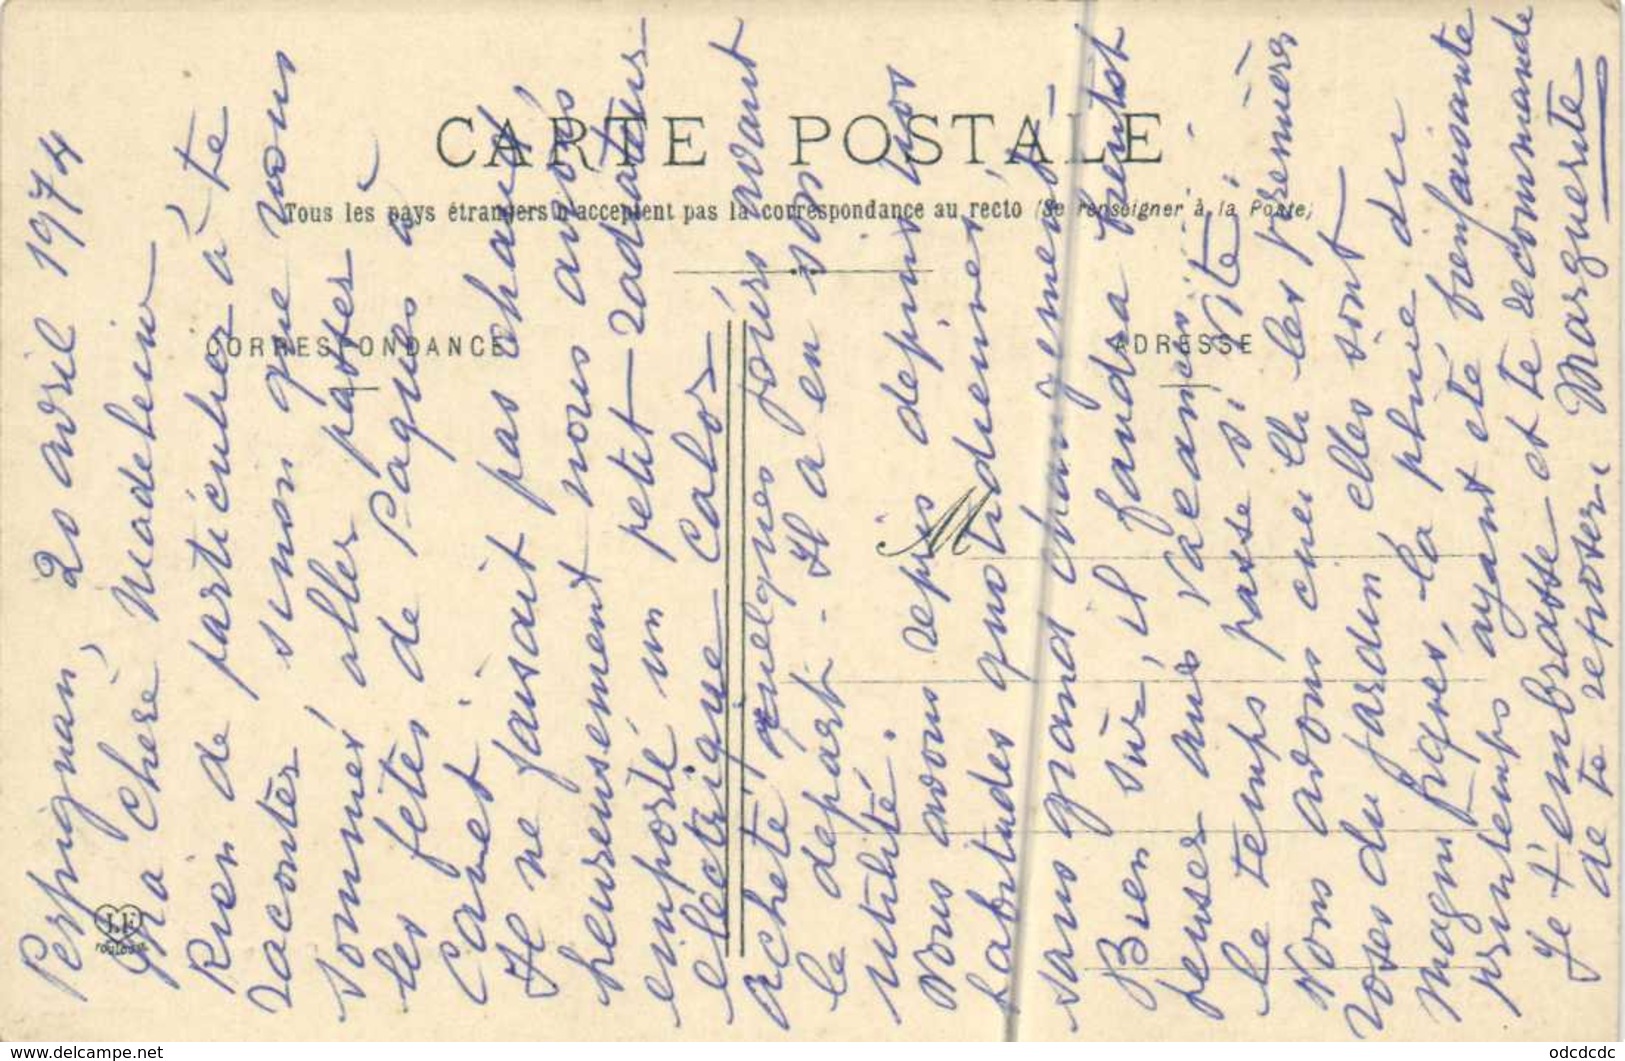 CARTE POSTALE
Tous les pays étrangers n'acceptent pas la correspondance au recto (Se renseigner à la Poste)
CORRESPONDANCE
ADRESSE
M
J.F
Perpignan, 20 avril 1974
Ma chère Madeleine
Rien de particulier à te
raconter sinon que nous
sommes aller passer
les fêtes de Pâques à
Canet
Il ne faisait pas chaud,
heureusement nous avons
emporté un petit radiateur
électrique Calor
acheté quelques jours avant
le départ. Il a en son
utilité.
Nous avons repris depuis nos
habitudes quotidiennes,
sans grand changement
Bien sûr, il faudra bientôt
penser aux vacances.
Le temps passe si vite!
Nous avons cueilli les premières
roses du jardin elles sont
magnifiques, la pluie du
printemps ayant été bienfaisante
Je t'embrasse et te recommande
de te reposer. Marguerite
www.delcampe.net
odcdcdc